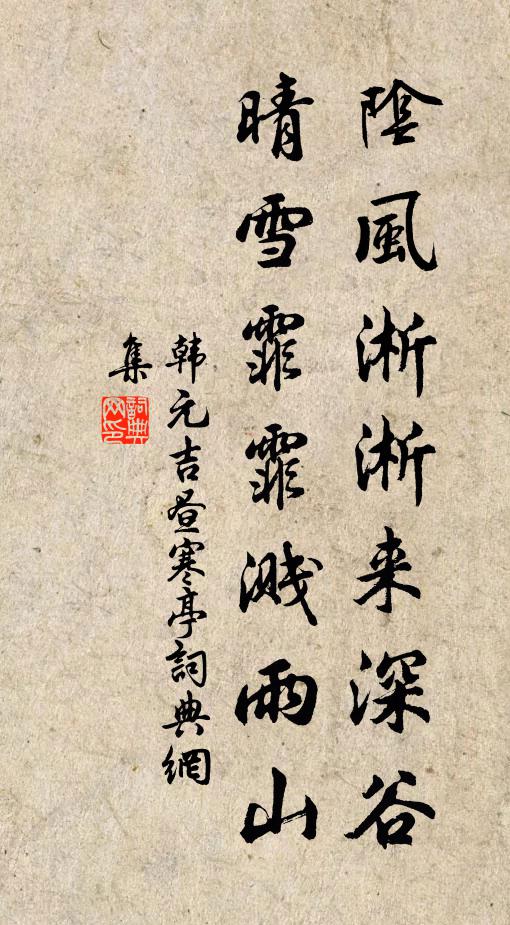 陰風淅淅来深谷
晴雪霏霏濺雨山
韩元吉昼寒亭詞典網
集
詞典網印